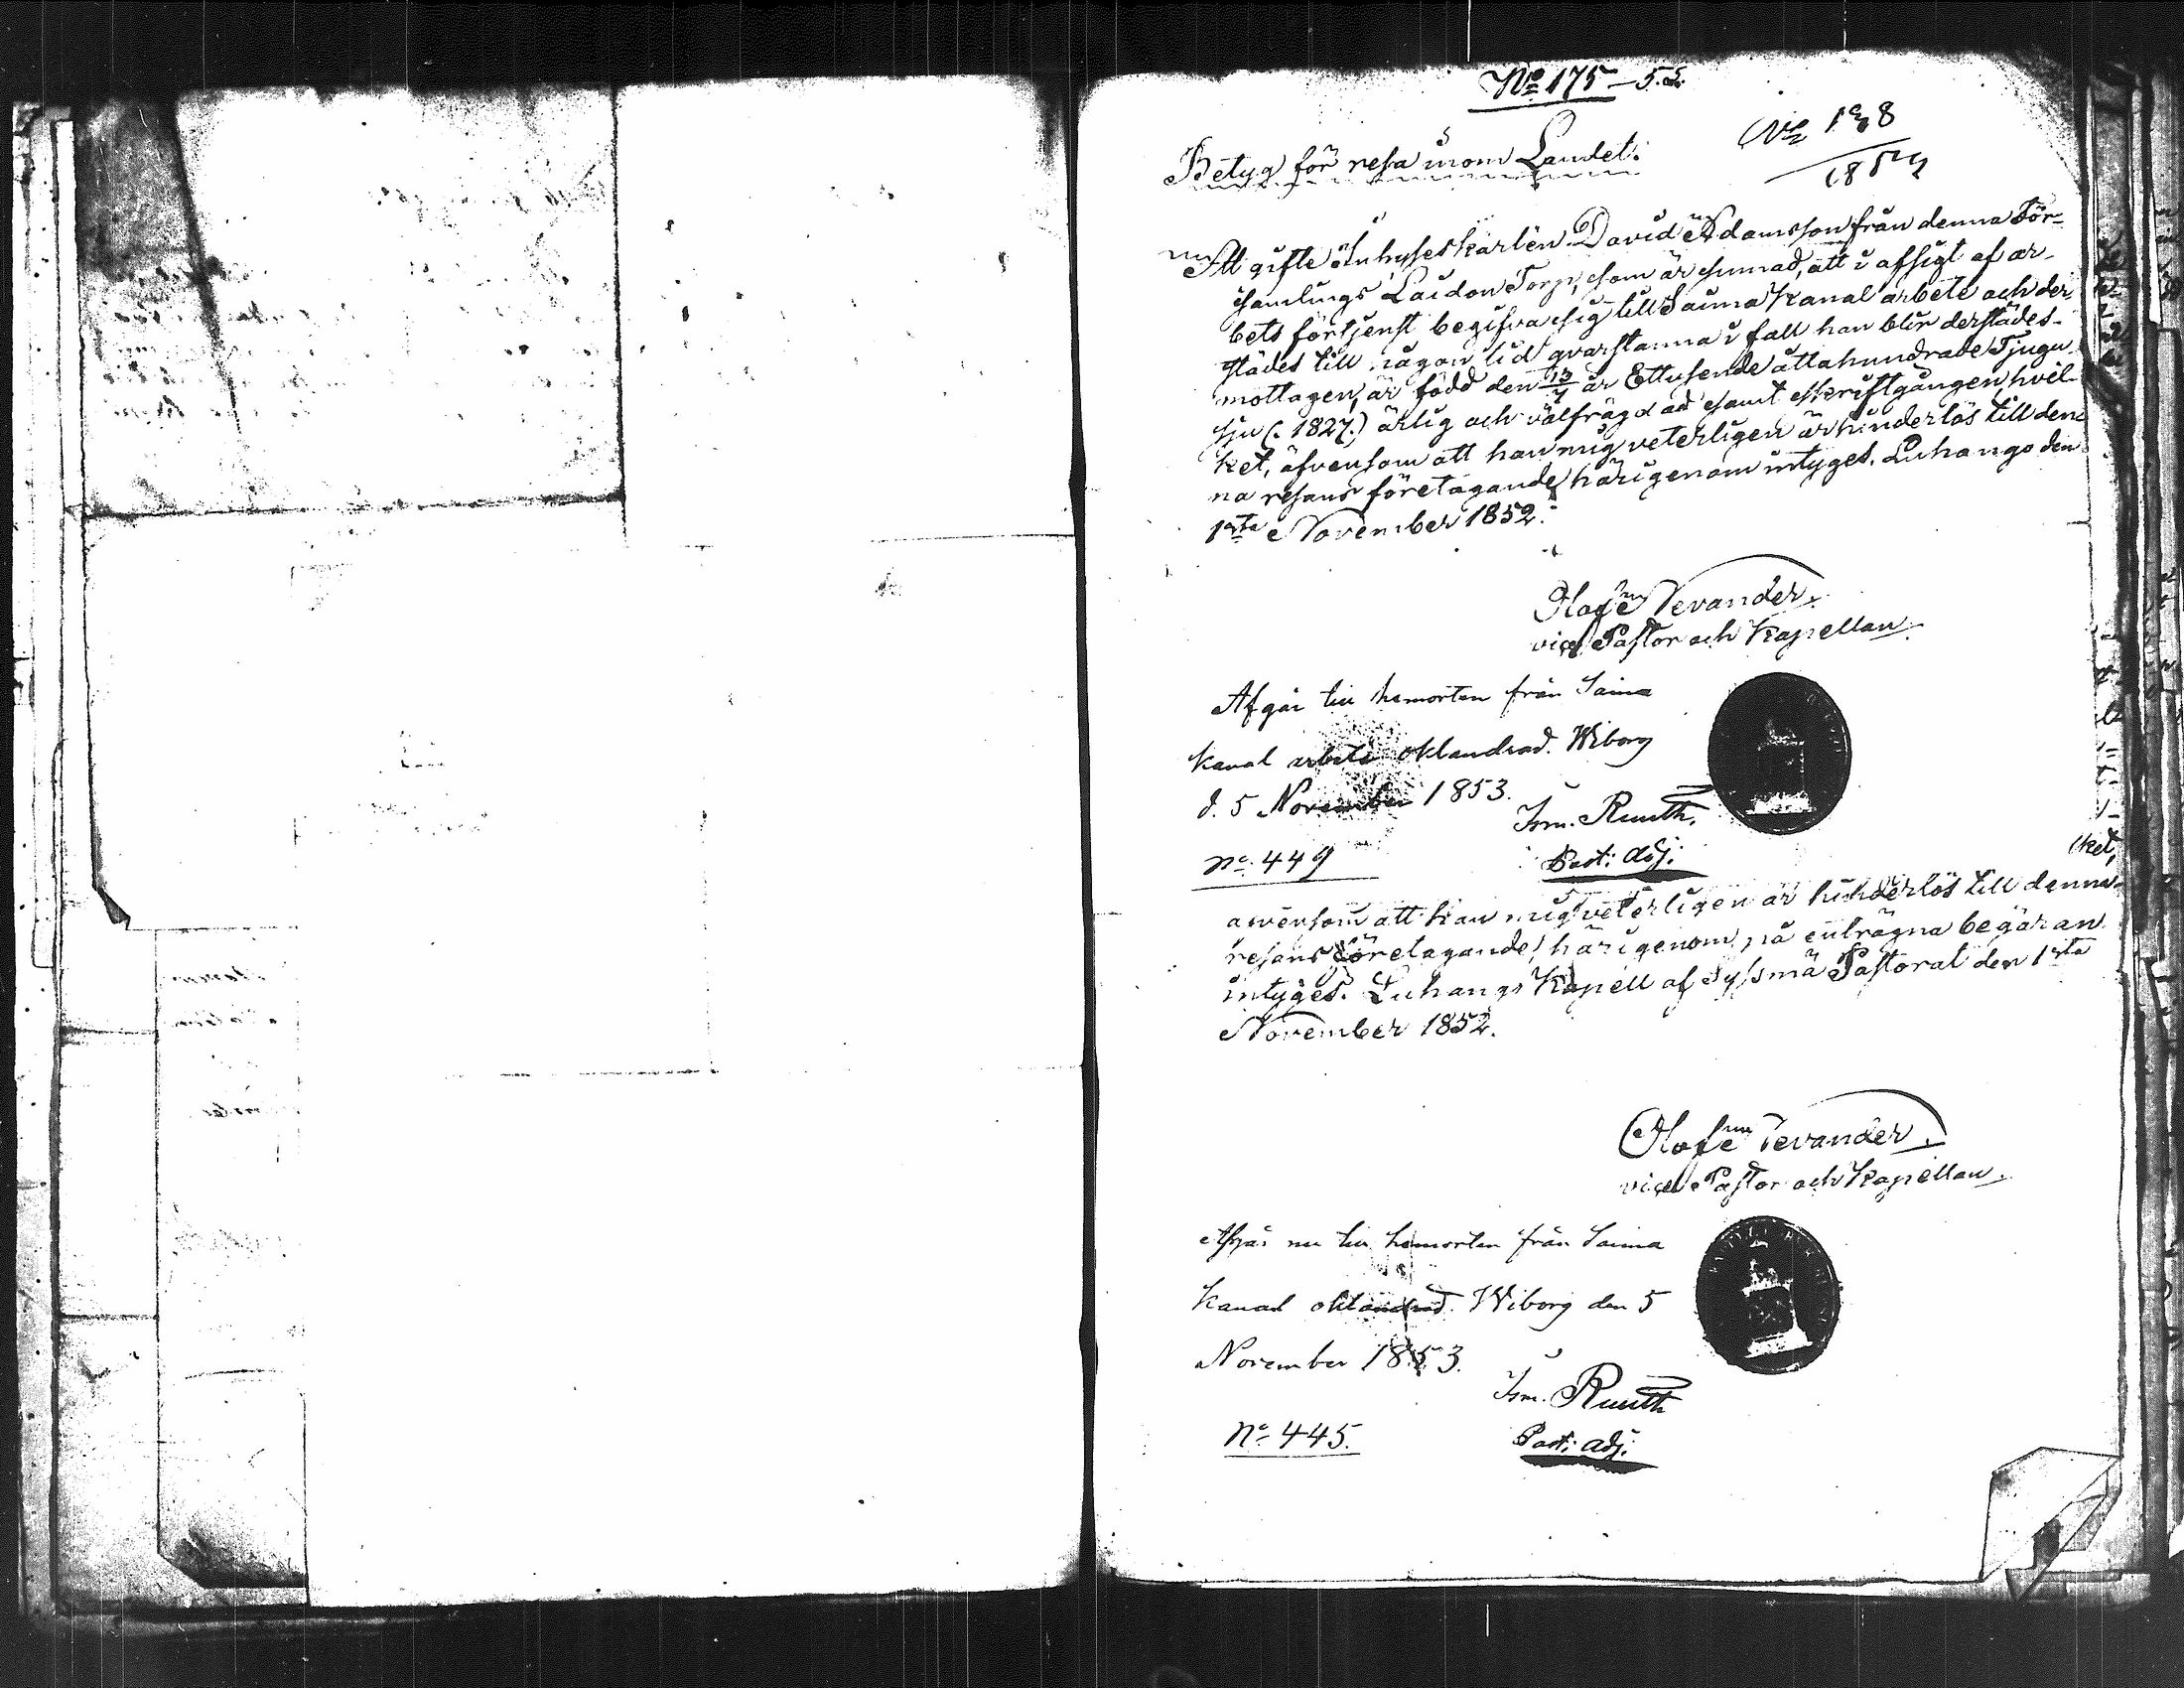 No 175 - 5.
No 138
1854
Betyg för resa inom Landet.
Att gifte Inhyseskarlen David Adamsson från denna För-
samlings Laidon Torp, som är sinnad, att i afsigt af ar-
bets förtjenst begifva sig till Saima Kanal arbete och der-
städes till någon tid qvarstanna i fall han blir derstädes
mottagen, är född den 13/4 år Ettusende åttahundrade Tjugu
sju (: 1827.) ärlig och välfrägdad samt skriftgången, hvil-
ket, äfvensom att han mig veterligen är hinderlös till den-
na resans företagande, härigenom intyges. Luhango den
1sta November 1852.
Olof Levander
vice Pastor och Kapellan.
Afgår till hemorten från Saima
Kanal arbete oklandrad. Wiborg
d. 5 November 1853.
Ism. Ruuth,
Past: Adj:
No 449
ket,
äwensom att han mig veterligen är hinderlös till denna
resans företagande, härigenom på enträgna begäran
intyges. Luhango Kapell af Sysmä Pastorat den 1sta
November 1852.
Olof Levander
vice Pastor och Kapellan.
Afgår nu till hemorten från Saima
Kanal oklandrad. Wiborg den 5
November 1853.
Ism. Ruuth
Past: adj:
No 445.